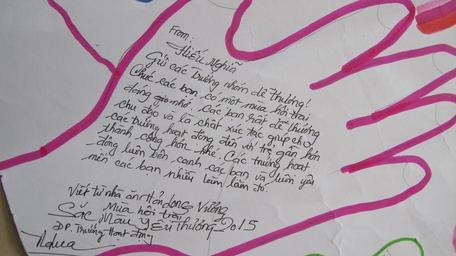 From:
Hiếu Nghĩa
Gửi các trưởng nhóm dễ thương!
Chúc các bạn có một mùa hội trại
đáng nhớ. Các bạn rất dễ thương
chu đáo và là chất xúc tác giúp cho
các trưởng hoạt động đến với trẻ gần hơn
thành công hơn nhé. Các trưởng hoạt
động luôn bên cạnh các bạn và luôn yêu
mến các bạn nhiều lắm lắm đó.
Viết từ nhà ăn Hùng Vương
Mùa hội trại
Sắc Màu Yêu Thương 2015
ĐP. Trưởng Hoạt động
Nghĩa